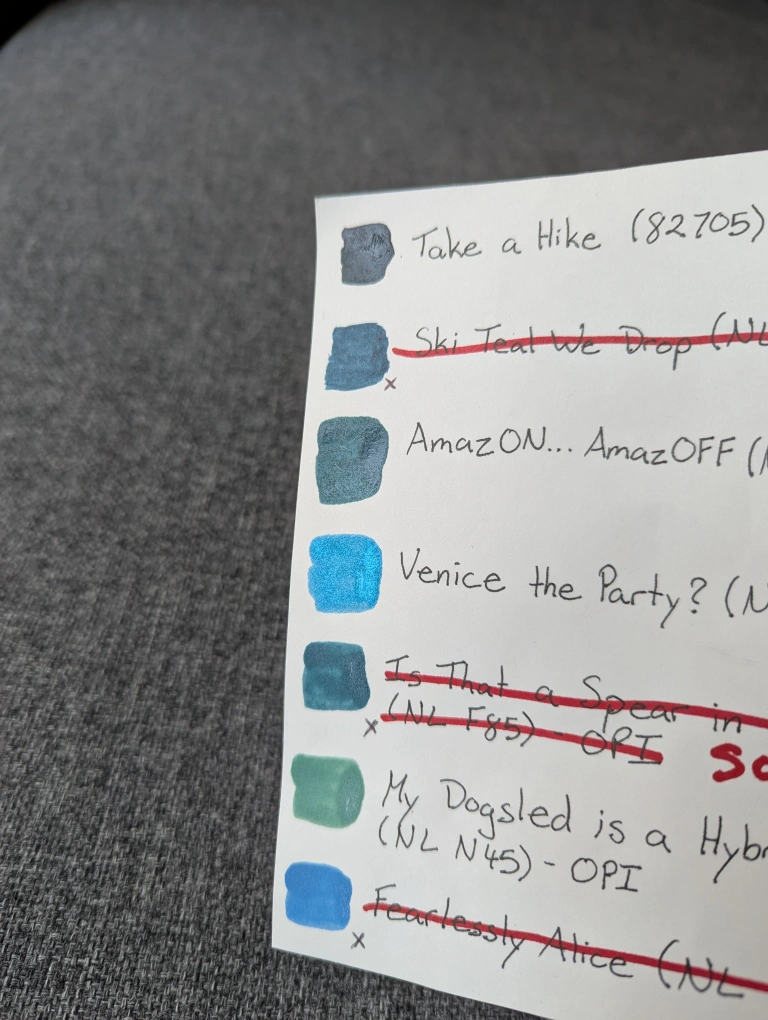 Take a Hike (82705)
Ski Teal We Drop (NL
x
AmazON... AmazOFF (N
Venice the Party? (N
Is That a Spear in
(NL F85) - OPI SO
x
My Dogsled is a Hyb
(NL N45) - OPI
Fearlessly Alice (NL
x